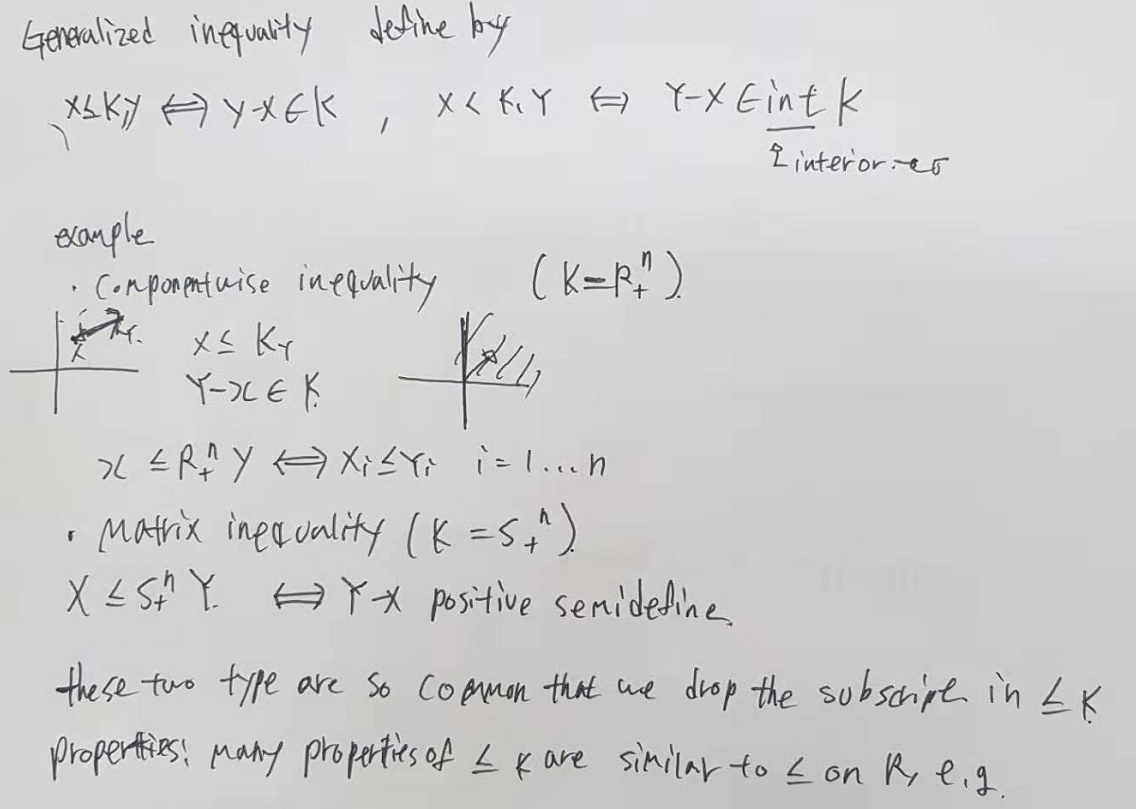 Generalized inequality define by
X≤K,y ⟺ y-x∈K , X< K,Y ⟺ Y-X∈int K
interior
example
· Componentwise inequality (K=R₊ⁿ).
X≤ K_Y
Y-x∈K
x ≤R₊ⁿ Y ⟺ Xᵢ≤Yᵢ i=1...n
· Matrix inequality (K=S₊ⁿ).
X ≤S₊ⁿ Y. ⟺ Y-X positive semidefine.
these two type are so common that we drop the subscript in ≤ K
properties: many properties of ≤ K are similar to ≤ on R, e.g.